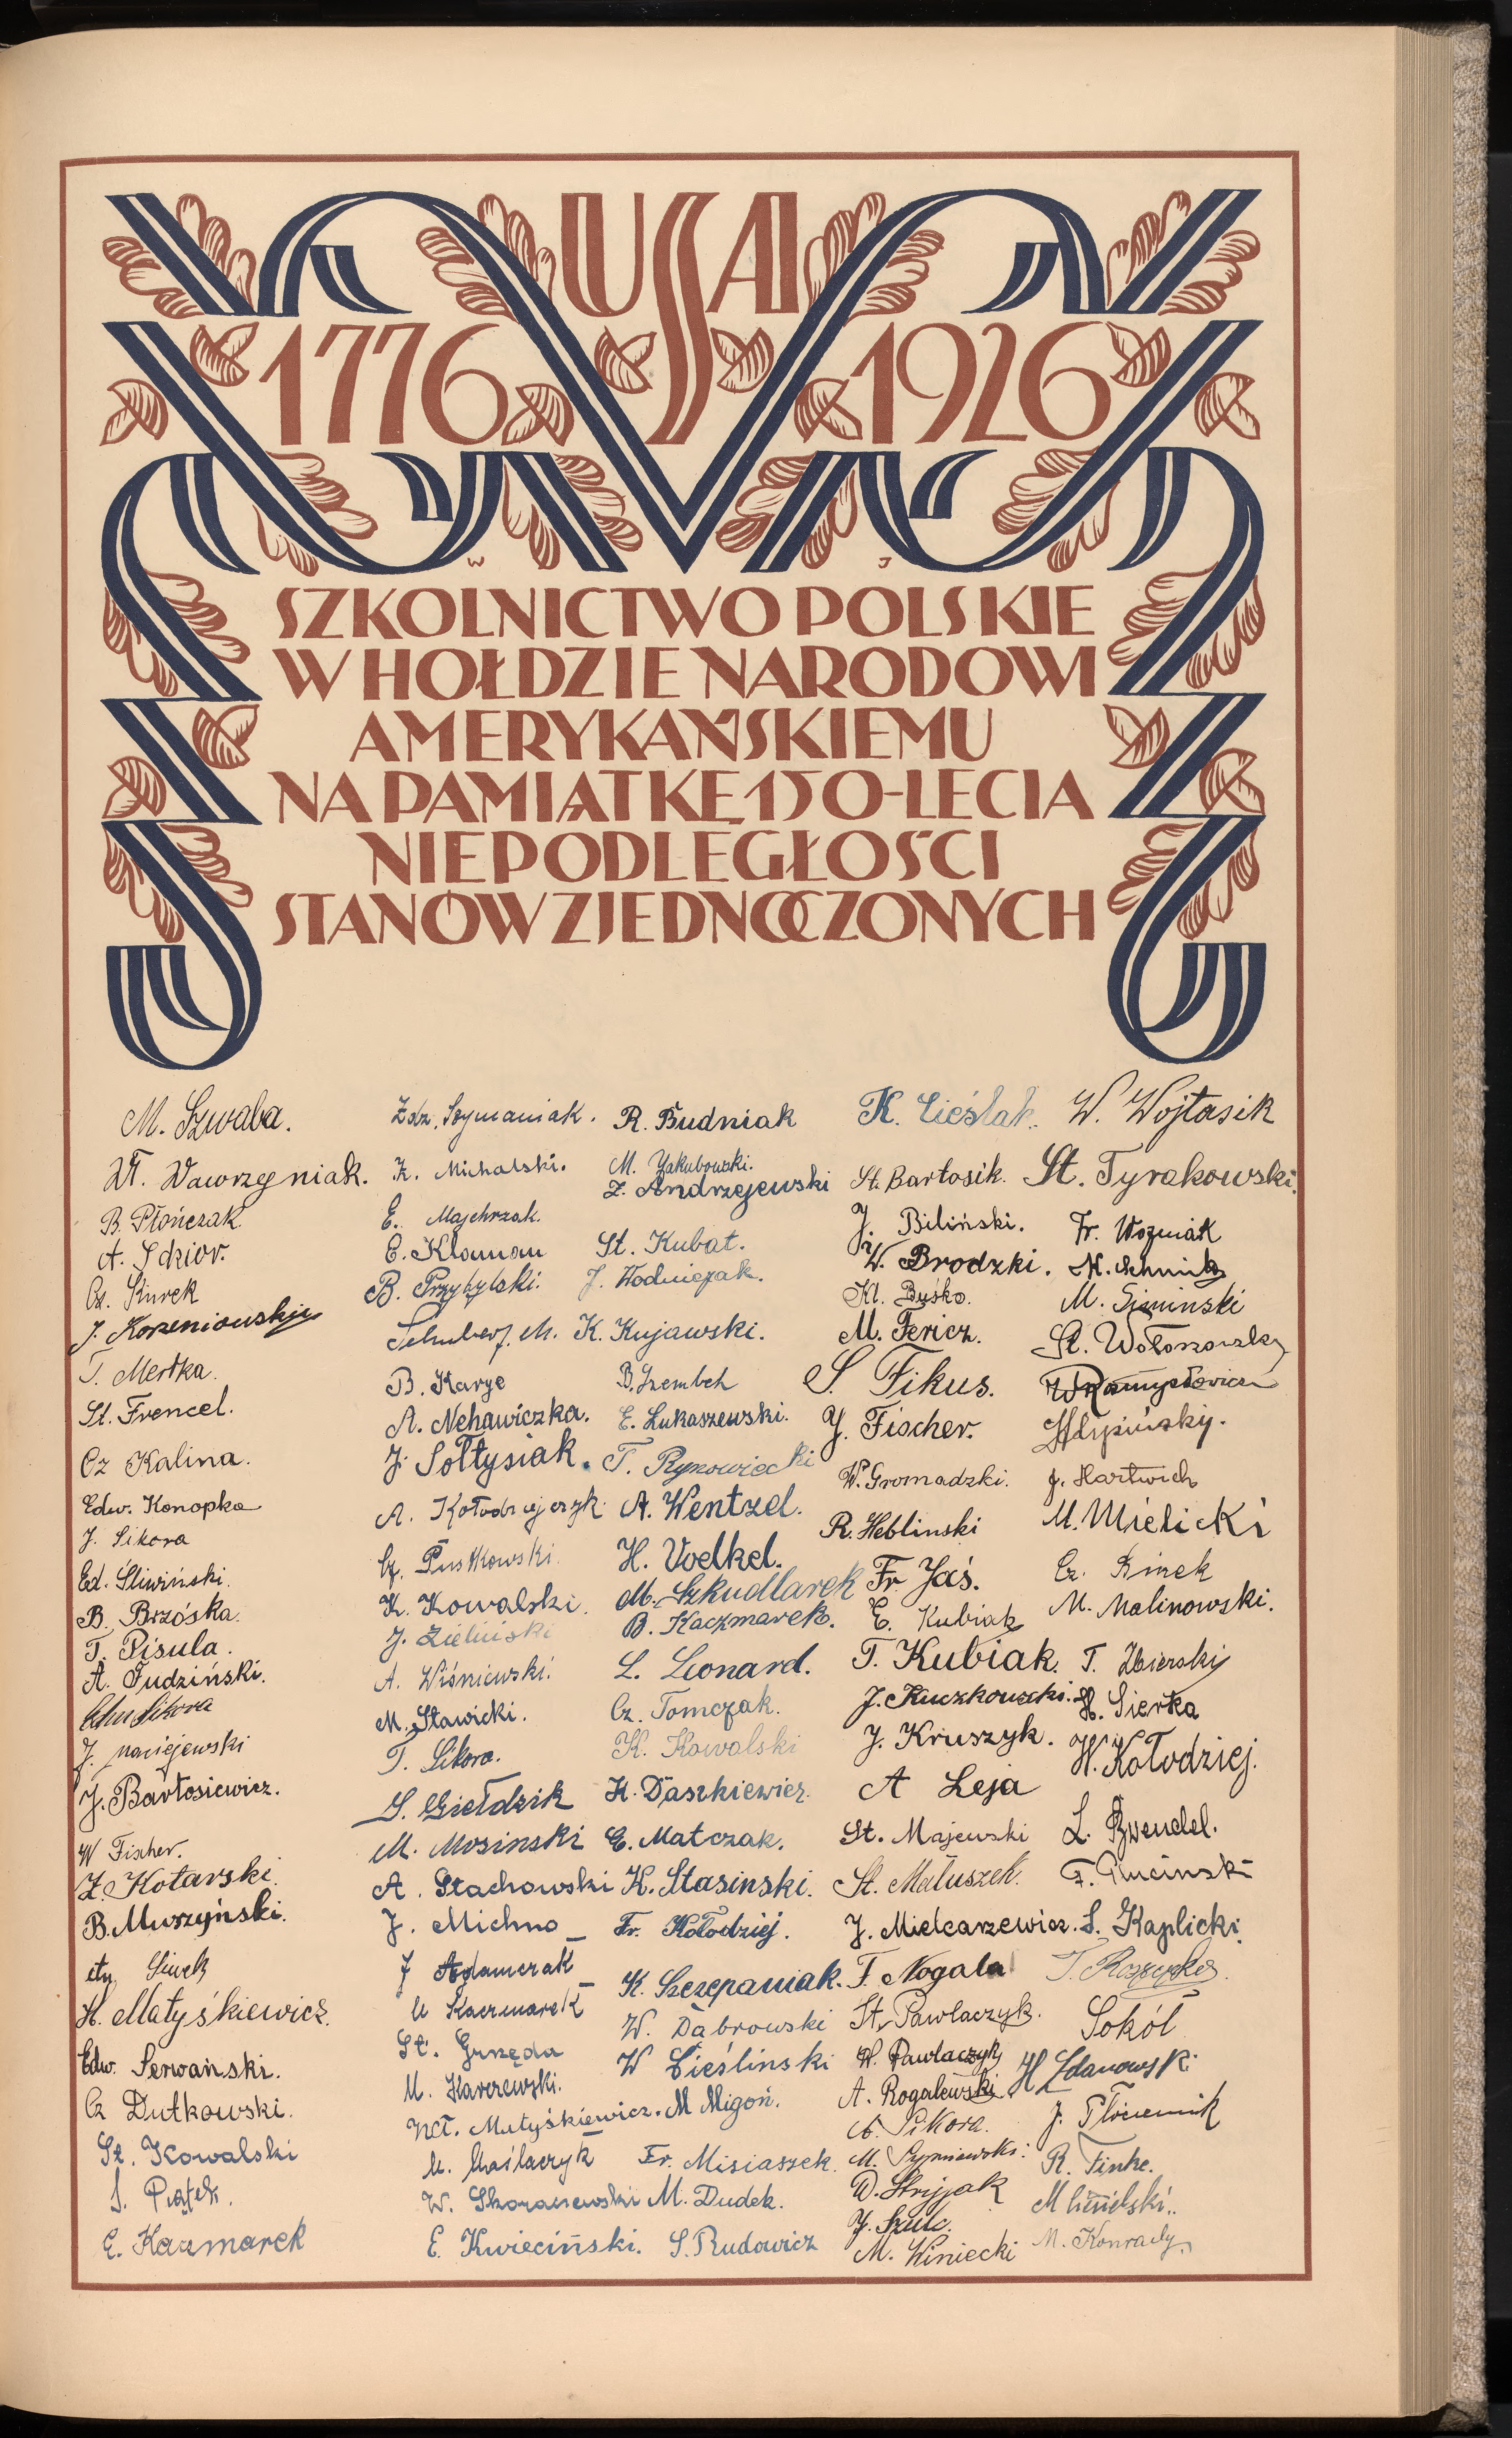 USA
1776 1926
SZKOLNICTWO POLSKIE
W HOŁDZIE NARODOWI
AMERYKAŃSKIEMU
NA PAMIĄTKĘ 150-LECIA
NIEPODLEGŁOŚCI
STANÓW ZJEDNOCZONYCH
M. Szwaba.
Wł. Wawrzyniak.
B. Płończak
A. Idzior.
Cz. Kurek
J. Korzeniowski
T. Mertka.
St. Frencel.
Cz Kalina.
Edw. Konopka
J. Sikora
Ed. Śliwiński.
B. Brzóska.
T. Pisula.
A. Judziński.
Sikora
J. Maciejewski
J. Bartosiewicz.
W Fischer.
Z. Kotarski.
B. Muszyński.
H. Matyśkiewicz.
Edw. Serwański.
Cz Dutkowski.
St. Kowalski
S. Piątek.
E. Kaczmarek
Zdz. Szymaniak.
K. Michalski.
E. Majchrzak.
E. Klaman
B. Przybylski.
Schubert. M.
B. Karge
A. Nehawiczka.
J. Sołtysiak.
A. Kołodziejczyk
Cz. Pustkowski.
K. Kowalski.
J. Zieliński
A. Wiśniewski.
M. Sławicki.
T. Sikora.
S. Giełdzik
M. Mosinski
A. Stachowski
J. Michno
J Adamczak
M Kaczmarek
St. Grzęda
M. Karczewski.
Wł. Matyśkiewicz.
M. Maślaczyk
W. Skoraszewski
E. Kwieciński.
R. Budniak
M. Jakubowski.
Z. Andrzejewski
St. Kubat.
J. Wodniczak.
K. Kujawski.
B. Szembek
E. Łukaszewski.
T. Rynowiecki
A. Wentzel.
H. Voelkel.
M. Szkudlarek
B. Kaczmarek.
L. Leonard.
Cz. Tomczak.
K. Kowalski
H. Daszkiewicz.
E. Matczak.
K. Stasinski.
Fr. Kołodziej.
K. Szczepaniak.
W. Dąbrowski
W Cieślinski
M Migoń.
Fr. Misiaszek.
M. Dudek.
S. Rudowicz
K. Cieślak.
St. Bartosik.
J. Biliński.
W. Brodzki.
Kl. Buśko.
M. Fericz.
S. Fikus.
J. Fischer.
W. Gromadzki.
R. Heblinski
Fr Jaś.
E. Kubiak
T. Kubiak.
J. Kuczkowski.
J. Kruszyk.
A Leja
St. Majewski
St. Matuszek.
J. Mielcarzewicz.
F. Nogala
St. Pawlaczyk.
W. Pawlaczyk
A. Rogalewski
A. Sikora.
M. Szymiewski.
W. Stryjak
J. Szulc.
M. Winiecki
W. Wojtasik
St. Tyrakowski.
Fr. Wozniak
M. Simiński
J. Hartwich
M. Mielicki
Cz. Rinek
M. Malinowski.
T. Zbierski
H. Sierka
W. Kołodziej.
F. Plucinski
S. Kaplicki.
Sokół
H Zdanowski
J. Płóciennik
R. Finke.
M. Konrady.